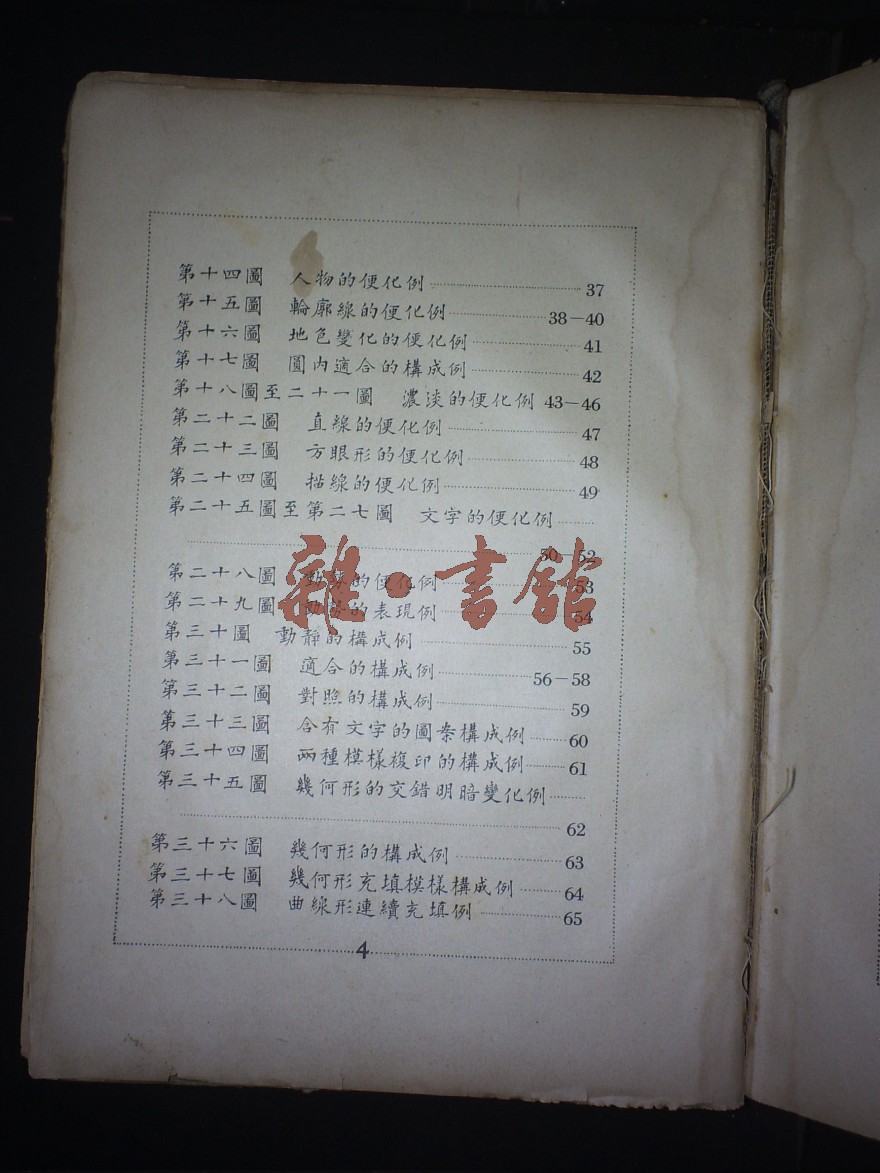 第十四圖 人物的便化例 37
第十五圖 輪廓線的便化例 38-40
第十六圖 地色變化的便化例 41
第十七圖 圓內適合的構成例 42
第十八圖至二十一圖 濃淡的便化例 43-46
第二十二圖 直線的便化例 47
第二十三圖 方眼形的便化例 48
第二十四圖 描線的便化例 49
第二十五圖至第二七圖 文字的便化例
50-52
第二十八圖 動勢的便化例 53
第二十九圖 動勢的表現例 54
雜·書館
第三十圖 動靜的構成例 55
第三十一圖 適合的構成例 56-58
第三十二圖 對照的構成例 59
第三十三圖 含有文字的圖案構成例 60
第三十四圖 兩種模樣複印的構成例 61
第三十五圖 幾何形的交錯明暗變化例
62
第三十六圖 幾何形的構成例 63
第三十七圖 幾何形充填模樣構成例 64
第三十八圖 曲線形連續充填例 65
4